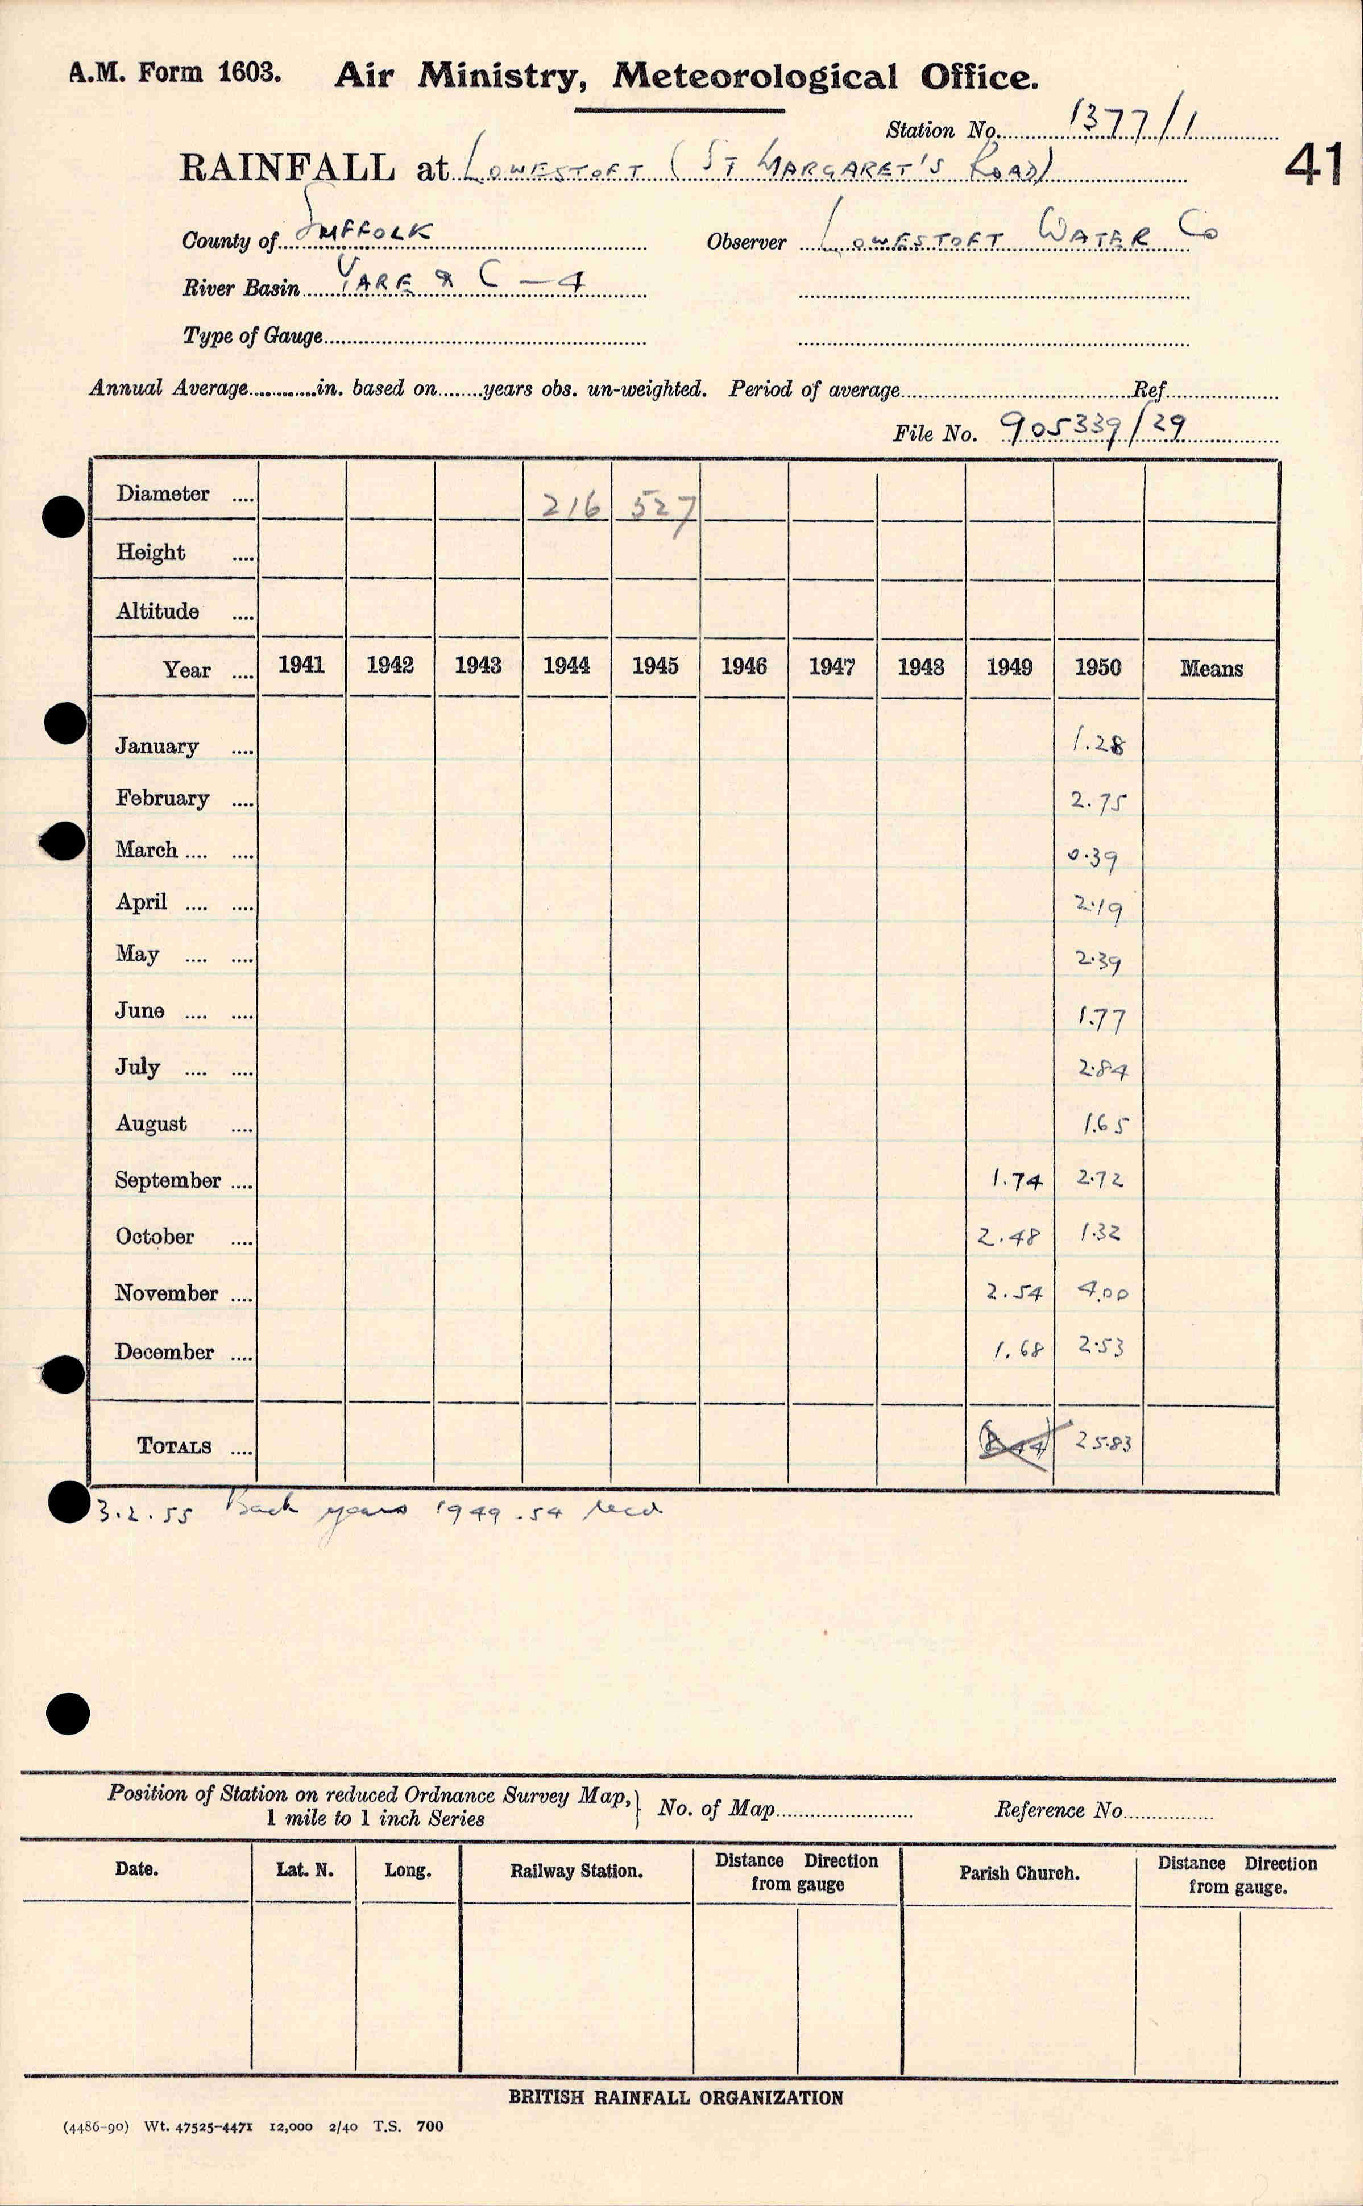 A.M. Form 1603. Air Ministry, Meteorological Office.
Station No. 1377/1
41
RAINFALL at LOWESTOFT (ST MARGARET'S ROAD)
County of SUFFOLK Observer LOWESTOFT WATER Co
River Basin YARE & C - 4
Type of Gauge
Annual Average in. based on years obs. un-weighted. Period of average Ref.
File No. 905339/29
Diameter .... 216 527
Height ....
Altitude ....
Year .... 1941 1942 1943 1944 1945 1946 1947 1948 1949 1950 Means
January .... 1.28
February .... 2.75
March .... .... 0.39
April .... .... 2.19
May .... .... 2.39
June .... .... 1.77
July .... .... 2.84
August .... 1.65
September .... 1.74 2.72
October .... 2.48 1.32
November .... 2.54 4.00
December .... 1.68 2.53
TOTALS .... (8.44) 25.83
3.2.55 Back years 1949.54 recd
Position of Station on reduced Ordnance Survey Map, } No. of Map Reference No
1 mile to 1 inch Series
Date. Lat. N. Long. Railway Station. Distance Direction Parish Church. Distance Direction
from gauge from gauge.
BRITISH RAINFALL ORGANIZATION
(4486-90) Wt. 47525-4471 12,000 2/40 T.S. 700